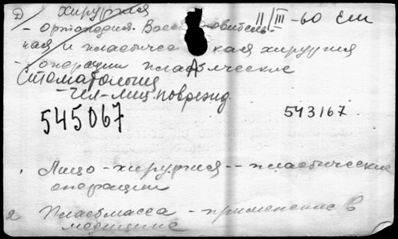 Д) хирургия
11/III-60 сш
- ортопедия. Восстановитель-
ная и пластическая хирургия
- операции пластические
Стоматология
- чел-лиц. поврежд.
545067
543167
1. Лицо - хирургия -- пластические
операции
2 Пластмасса - применение в
медицине